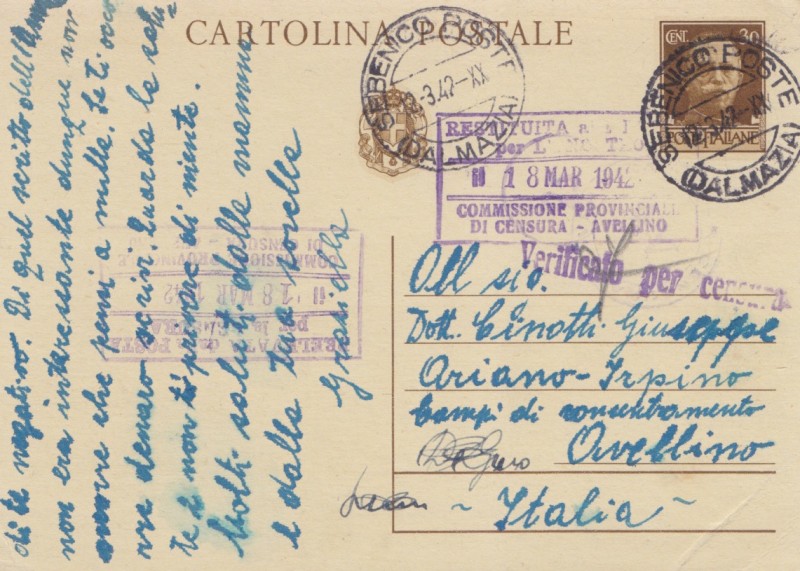 CARTOLINA POSTALE
CENT. 30
POSTE ITALIANE
SEBENICO POSTE
3.42-XX
(DALMAZIA)
SEBENICO POSTE
3.42-XX
(DALMAZIA)
RESTITUITA
per L'INOLTRO
il 18 MAR 1942
COMMISSIONE PROVINCIALE
DI CENSURA - AVELLINO
Verificato per censura
PRELEVATA dalla POSTE
per la CENSURA
il 18 MAR 1942
COMMISSIONE PROVINCIALE
DI CENSURA - AVELLINO
All sig.
Dott. Cinotti Giuseppe
Ariano-Irpino
Campi di concentramento
Avellino
~ Italia ~
di te negativo. Di quel scrito dell'
non era interessante dunque non
che penni a nulla. Se ti
re denaro scrivi. Guarda la salu-
te e non ti privare di niente.
Molti saluti dalla mamma
e dalla tua sorella